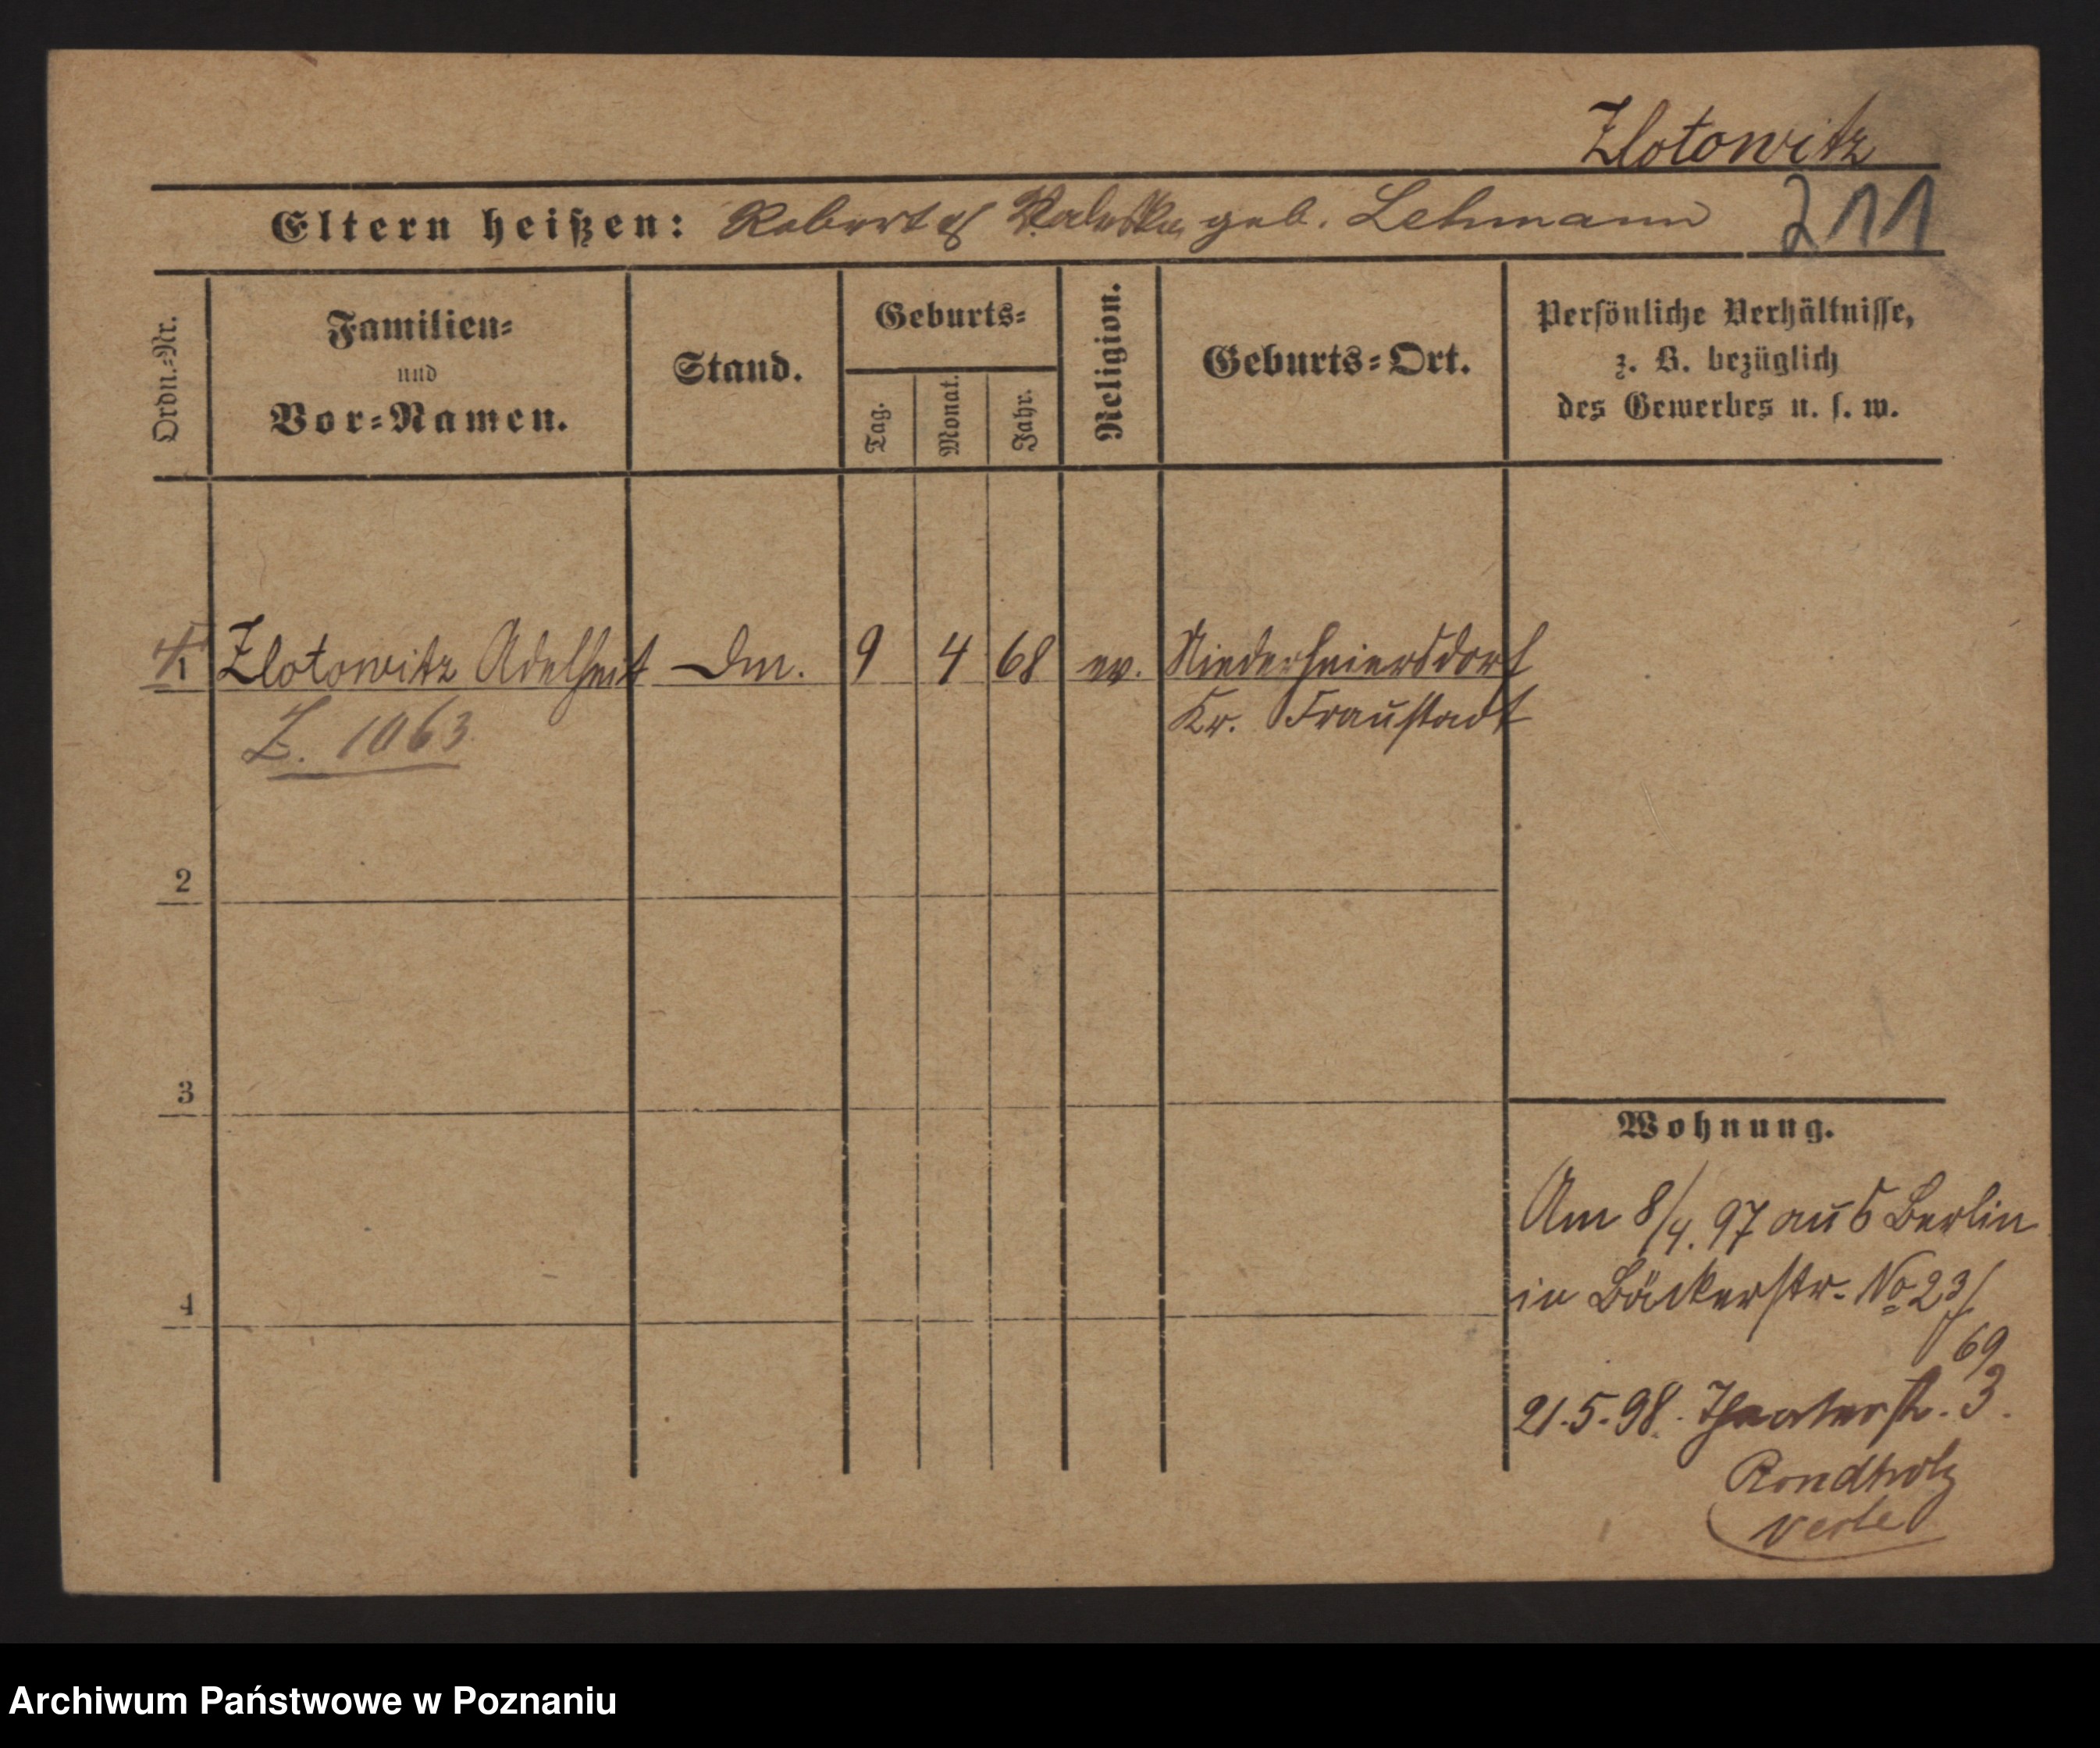 Zlotowitz
Eltern heißen: Robert & Valeska geb. Lehmann 211
Ordn.-Nr.
Familien-
und
Vor-Namen.
Stand.
Geburts-
Tag.
Monat.
Jahr.
Religion.
Geburts-Ort.
Persönliche Verhältnisse,
z. B. bezüglich
des Gewerbes u. s. w.
1 Zlotowitz Adelheit 9 4 68 ev. Niederheiersdorf
Kr. Fraustadt
Z. 1063
2
3
4
Wohnung.
Am 8/4. 97 aus Berlin
in Bäckerstr. No 23/
69
21.5.98. Theaterstr. 3.
Rondholz
Archiwum Państwowe w Poznaniu